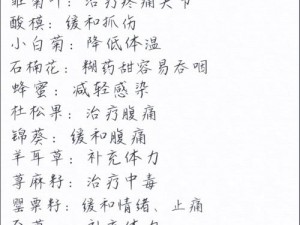 酸模：缓和抓伤
小白菊：降低体温
石楠花：糊药甜容易吞咽
蜂蜜：减轻感染
杜松果：治疗腹痛
锦葵：缓和腹痛
羊耳草：补充体力
荨麻籽：治疗中毒
罂粟籽：缓和情绪、止痛